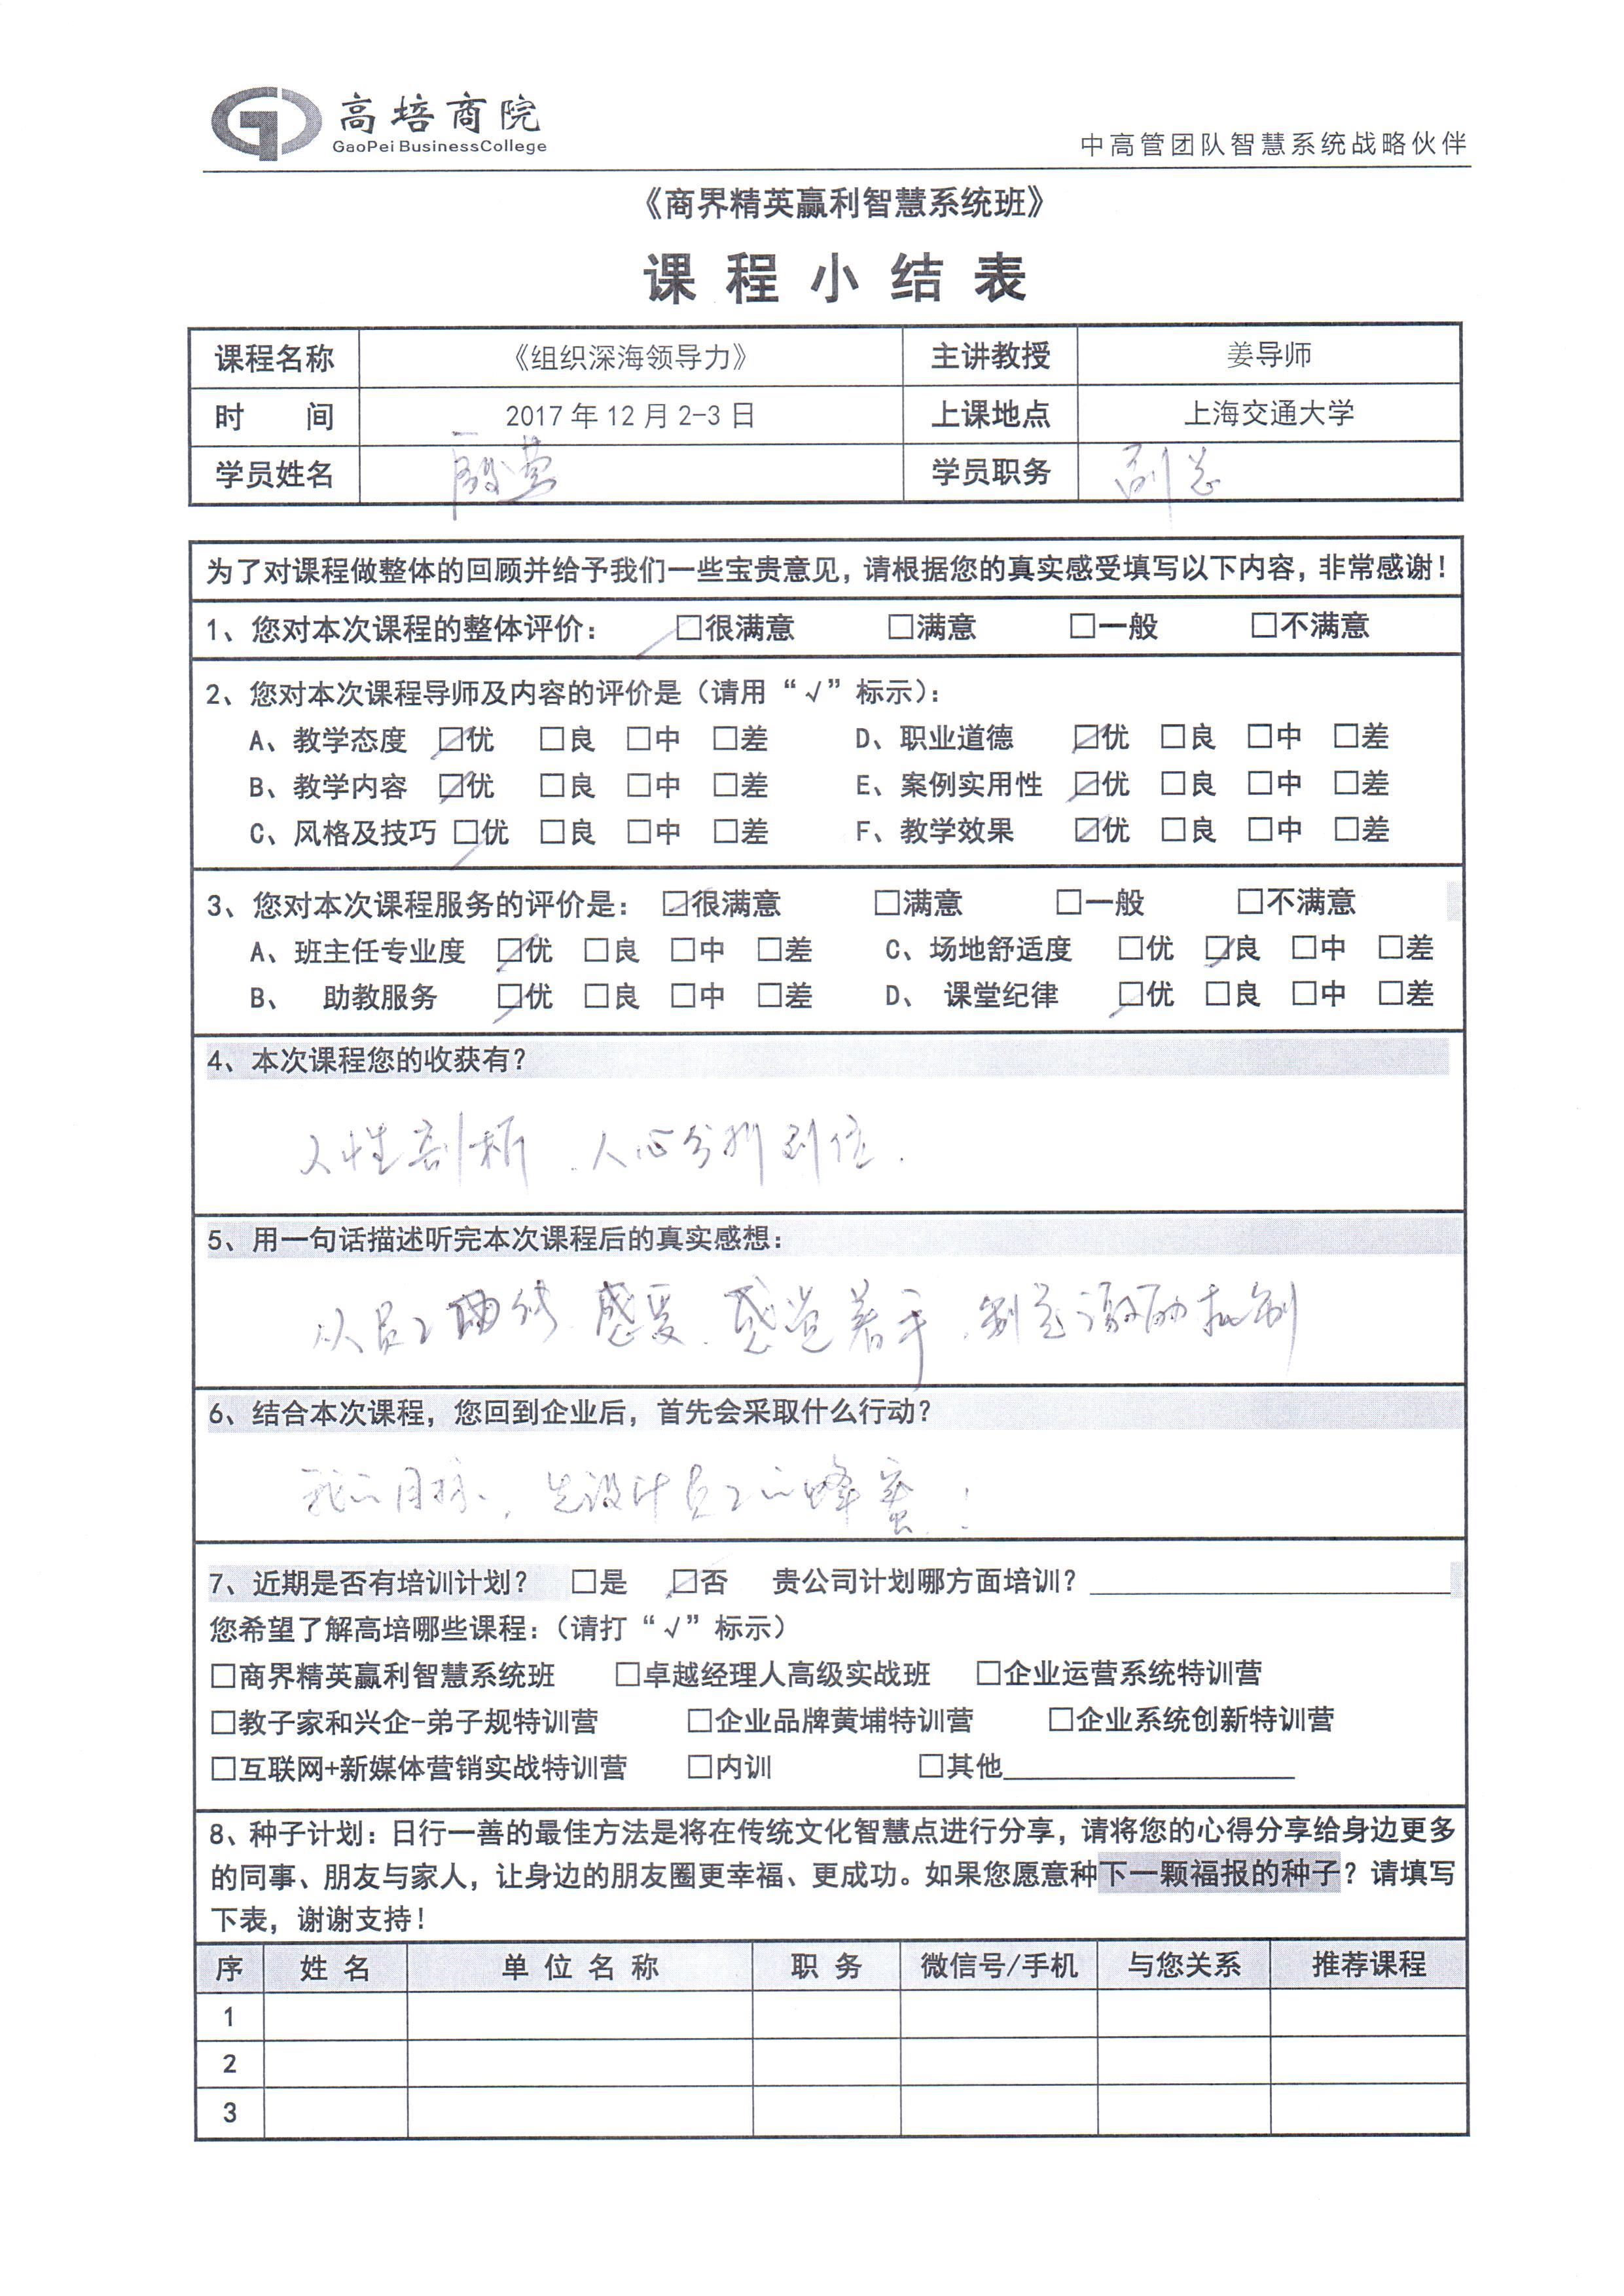 高培商院
GaoPei BusinessCollege
中高管团队智慧系统战略伙伴
《商界精英赢利智慧系统班》
课程小结表
课程名称 《组织深海领导力》 主讲教授 姜导师
时 间 2017年12月2-3日 上课地点 上海交通大学
学员姓名 学员职务 副总
为了对课程做整体的回顾并给予我们一些宝贵意见，请根据您的真实感受填写以下内容，非常感谢！
1、您对本次课程的整体评价： ☑很满意 □满意 □一般 □不满意
2、您对本次课程导师及内容的评价是（请用“√”标示）：
A、教学态度 ☑优 □良 □中 □差 D、职业道德 ☑优 □良 □中 □差
B、教学内容 ☑优 □良 □中 □差 E、案例实用性 ☑优 □良 □中 □差
C、风格及技巧 ☑优 □良 □中 □差 F、教学效果 ☑优 □良 □中 □差
3、您对本次课程服务的评价是： ☑很满意 □满意 □一般 □不满意
A、班主任专业度 ☑优 □良 □中 □差 C、场地舒适度 □优 ☑良 □中 □差
B、 助教服务 ☑优 □良 □中 □差 D、 课堂纪律 ☑优 □良 □中 □差
4、本次课程您的收获有？
人性剖析、人心分析到位.
5、用一句话描述听完本次课程后的真实感想：
从员工 感受、感觉着手，制定激励机制
6、结合本次课程，您回到企业后，首先会采取什么行动？
我的目标，先设计员工的蜂蜜！
7、近期是否有培训计划？ □是 ☑否 贵公司计划哪方面培训？
您希望了解高培哪些课程：（请打“√”标示）
□商界精英赢利智慧系统班 □卓越经理人高级实战班 □企业运营系统特训营
□教子家和兴企-弟子规特训营 □企业品牌黄埔特训营 □企业系统创新特训营
□互联网+新媒体营销实战特训营 □内训 □其他
8、种子计划：日行一善的最佳方法是将在传统文化智慧点进行分享，请将您的心得分享给身边更多
的同事、朋友与家人，让身边的朋友圈更幸福、更成功。如果您愿意种下一颗福报的种子？请填写
下表，谢谢支持！
序 姓名 单位名称 职务 微信号/手机 与您关系 推荐课程
1
2
3